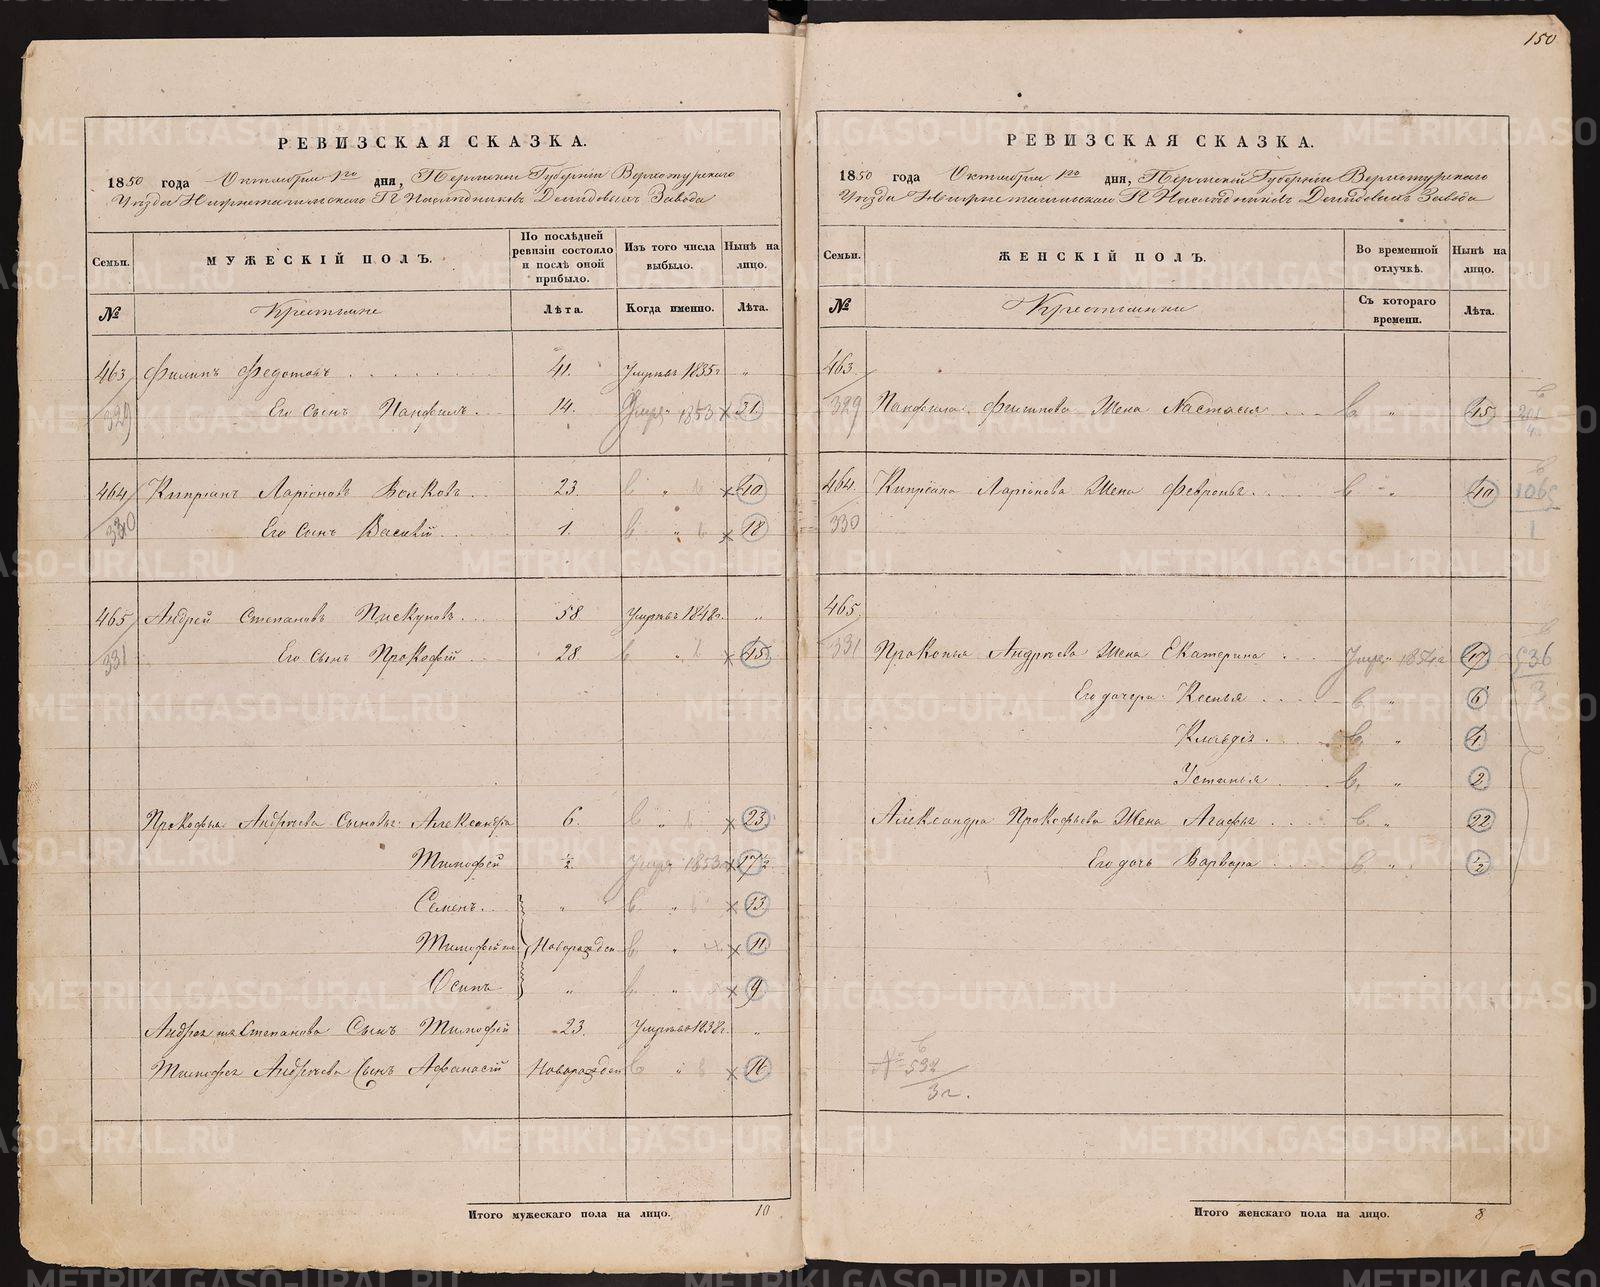 150
РЕВИЗСКАЯ СКАЗКА.
1850 года Октября 1го дня, Пермской Губернiи Верхотурскаго
Уѣзда Нижнетагильскаго Г Наслѣдниковъ Демидовыхъ Завода
Семьи.
МУЖЕСКIЙ ПОЛЪ.
По послѣдней ревизiи состояло и послѣ оной прибыло.
Изъ того числа выбыло.
Нынѣ на лицо.
№
Крестьяне
Лѣта.
Когда именно.
Лѣта.
463 Филипъ Федотовъ 41. Умръ въ 1835г „
329 Его Сынъ Панфилъ. 14. Умре 1853 × 31
464 Кипрiанъ Ларiоновъ Волковъ 23. „ × 40
330 Его Сынъ Василiй 1. „ × 18
465 Андрей Степановъ Пискуновъ. 58 Умръ въ 1848г. „
331 Его Сынъ Прокофiй 28 „ 45
Прокофья Андреева Сыновья: Александра 6. „ × 23
Тимофей ½ Умре 1853 × 17½
Семенъ. „ „ × 13
Тимофей 2й Новорожден „ × 11
Осипъ „ „ × 9
Андрея Степанова Сынъ Тимофей 23. Умръ въ 1838г. „
Тимофея Андреева Сынъ Афанасiй Новорожден „ × 16
Итого мужескаго пола на лицо. 10
РЕВИЗСКАЯ СКАЗКА.
1850 года Октября 1го дня, Пермской Губернiи Верхотурскаго
Уѣзда Нижнетагильскаго Г Наслѣдниковъ Демидовыхъ Завода
Семьи.
ЖЕНСКIЙ ПОЛЪ.
Во временной отлучкѣ.
Нынѣ на лицо.
№
Крестьянки
Съ котораго времени.
Лѣта.
463
329 Панфила Филипова Жена Настасья „ 45
464 Кипрiана Ларiонова Жена Февронья „ 40
330
1
465
331 Прокопья Андреева Жена Екатерина Умре 1854г 47 536
3
Его дочери: Ксенья „ 6
Клавдiя „ 4
Устинья „ 2
Александра Прокофьева Жена Агафья „ 22
Его дочь Варвара „ ½
№ 592
3 г.
Итого женскаго пола на лицо. 8
METRIKI.GASO-URAL.RU